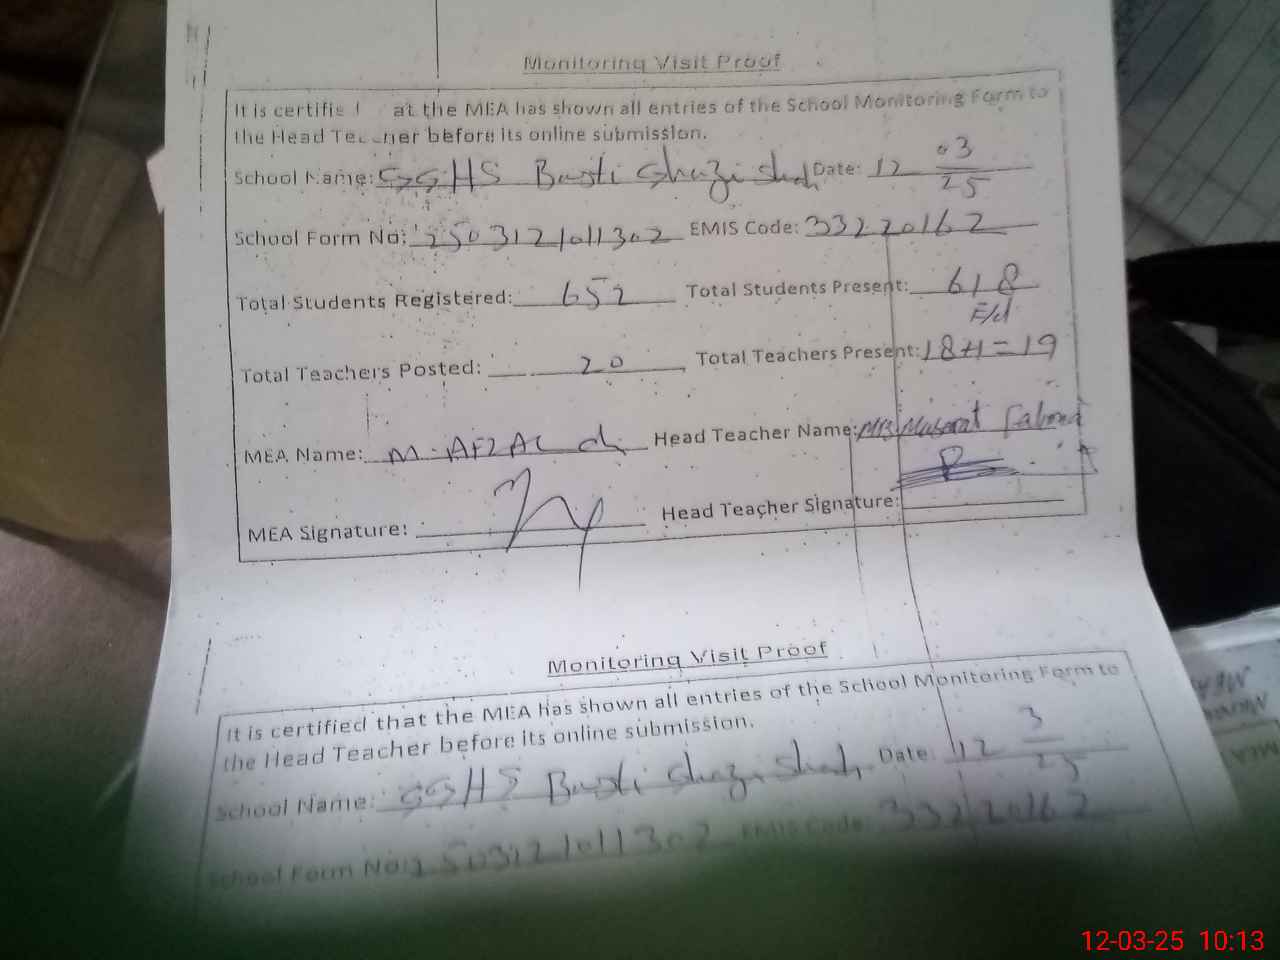 Monitoring Visit Proof
It is certifie at the MEA has shown all entries of the School Monitoring Form to
the Head Teacher before its online submission.
School Name: GGHS Basti Ghazi Shah Date: 12 03
25
School Form No: 2503121011302 EMIS Code: 33220162
Total Students Registered: 652 Total Students Present: 618
Total Teachers Posted: 20 Total Teachers Present: 18+1=19
MEA Name: M. AFZAL Head Teacher Name: Mrs Musarat
MEA Signature: Head Teacher Signature:
Monitoring Visit Proof
It is certified that the MEA has shown all entries of the School Monitoring Form to
the Head Teacher before its online submission.
School Name: GGHS Basti Ghazi Shah Date: 12 3
25
School Form No: 2503121011302 EMIS Code: 33220162
12-03-25 10:13